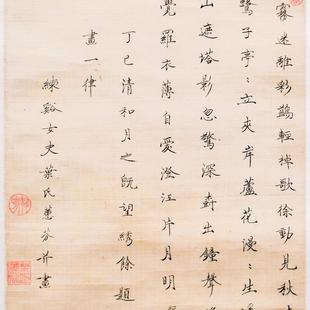 霧迷離彩鷁輕棹歌徐動見秋
鷺子亭〻立夾岸蘆花漫〻生
山遮塔影忽驚深樹出鐘聲
覺羅衣薄自愛澄江片月明
丁巳清和月之既望綉餘題
畫一律
練谿女史葉氏蕙芬并畫